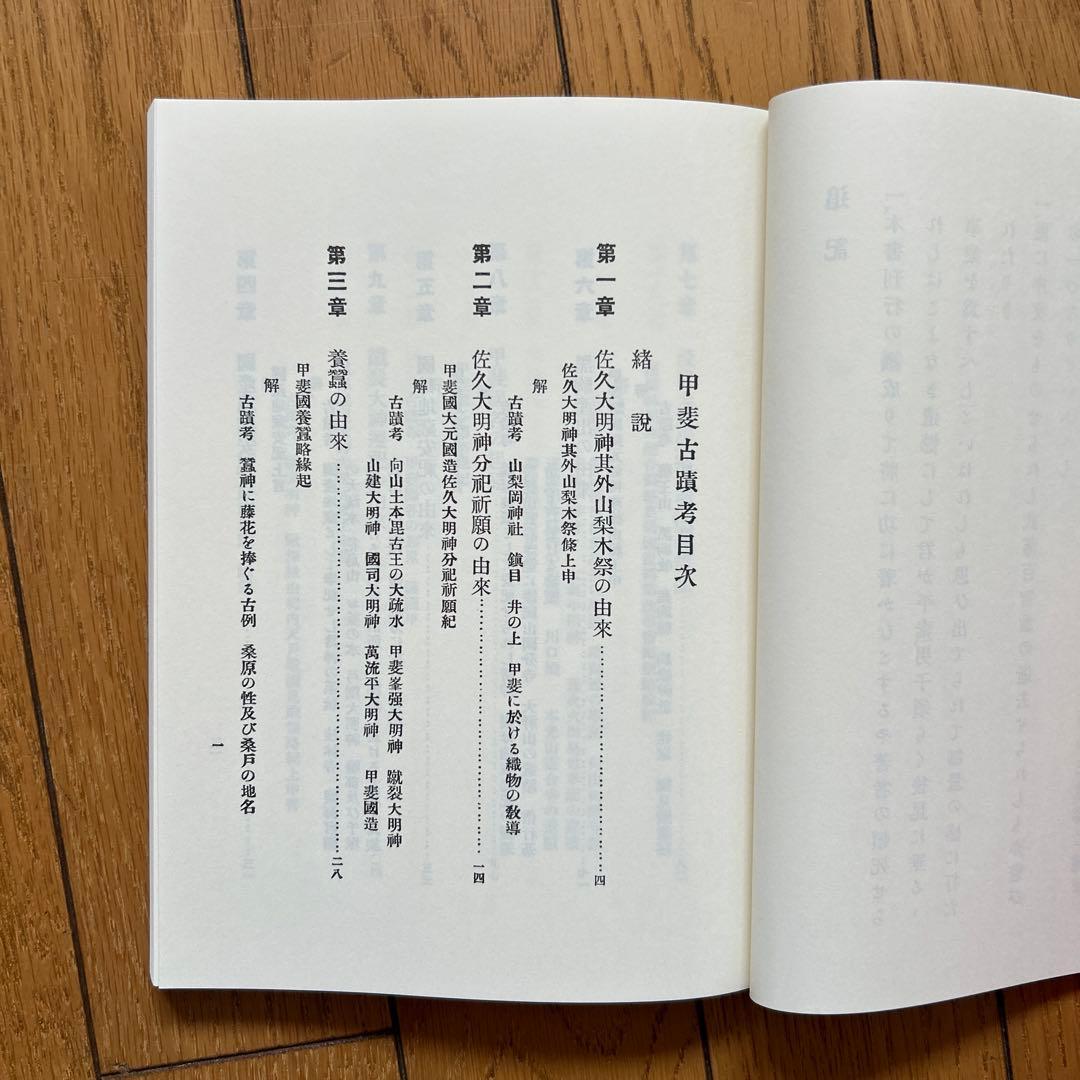 甲斐古蹟考目次
緒說
第一章 佐久大明神其外山梨木祭の由來…………四
佐久大明神其外山梨木祭條上申
解
古蹟考 山梨岡神社 鎭目 井の上 甲斐に於ける織物の敎導
第二章 佐久大明神分祀祈願の由來…………一四
甲斐國大元國造佐久大明神分祀祈願紀
解
古蹟考 向山土本毘古王の大疏水 甲斐峯强大明神 蹴裂大明神
山建大明神 國司大明神 萬流平大明神 甲斐國造
第三章 養蠶の由來…………二八
甲斐國養蠶略緣起
解
古蹟考 蠶神に藤花を捧ぐる古例 桑原の性及び桑戶の地名
一
追記